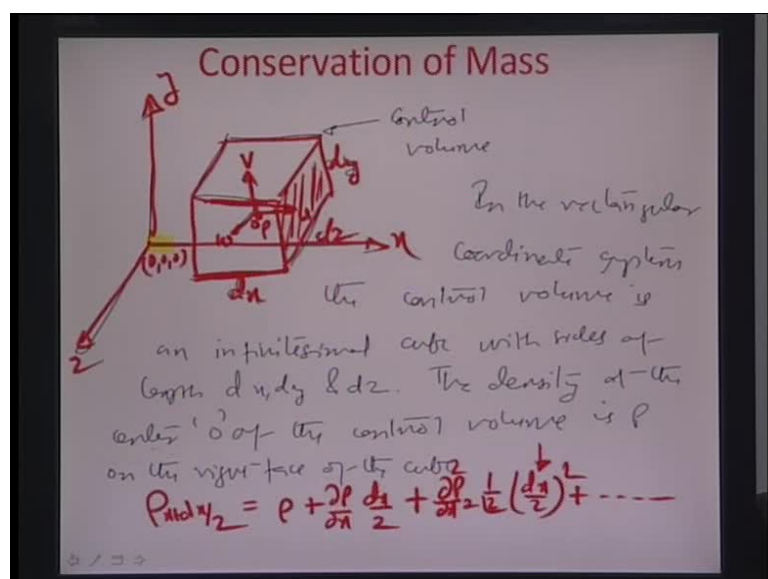 Conservation of Mass
y
control
volume
dy
v
o ρ
w
dz
x
(0,0,0)
dx
z
In the rectangular
coordinate system
the control volume is
an infinitesimal cube with sides of
length dx, dy & dz. The density at the
center 'o' of the control volume is ρ
on the right face of the cube
ρx+dx/2 = ρ + ∂ρ/∂x dx/2 + ∂²ρ/∂x² 1/2 (dx/2)² + ......